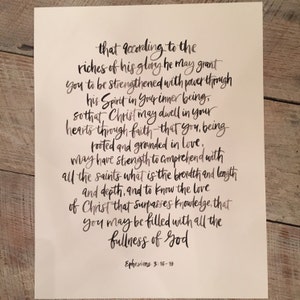 that according to the
riches of his glory he may grant
you to be strengthened with power through
his Spirit in your inner being,
so that Christ may dwell in your
hearts through faith - that you, being
rooted and grounded in love,
may have strength to comprehend with
all the saints what is the breadth and length
and depth, and to know the love
of Christ that surpasses knowledge, that
you may be filled with all the
fullness of God
Ephesians 3:16-19